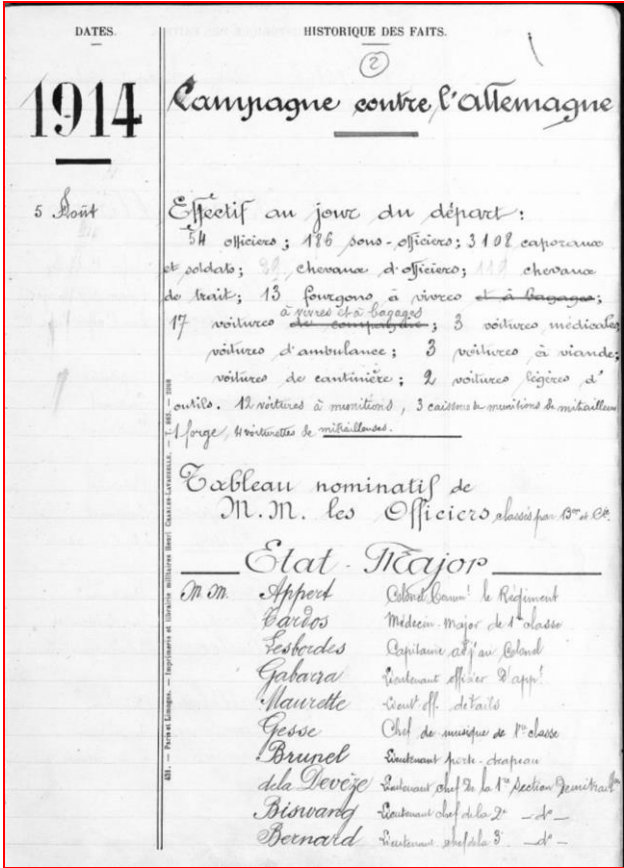 DATES.
HISTORIQUE DES FAITS.
2
1914
Campagne contre l'Allemagne
5 Août
Effectif au jour du départ :
54 officiers ; 186 sous-officiers ; 3108 caporaux
et soldats ; chevaux d'officiers ; chevaux
de trait ; 13 fourgons à vivres et à bagages ;
à vivres et à bagages
17 voitures de compagnie ; 3 voitures médicales
voitures d'ambulance ; 3 voitures à viande ;
voitures de cantinière ; 2 voitures légères d'
outils. 12 voitures à munitions, 3 caissons de munitions de mitrailleu
1 forge, 4 voiturettes de mitrailleuses.
Tableau nominatif de
M.M. les Officiers classés par Bon et Cie.
Etat-Major
M.M. Appert Colonel Commt le Régiment
Cardos Médecin-Major de 1e classe
Lesbordes Capitaine adj au Colonel
Gabarra Lieutenant officier d'appt
Maurette Lieut. off. détails
Gesse Chef de musique de 1re classe
Brunel Lieutenant porte-drapeau
de la Devèze Lieutenant chef de la 1re Section de mitraill
Biswang Lieutenant chef de la 2e -do-
Bernard Lieutenant chef de la 3e -do-
431. — Paris et Limoges. — Imprimerie et librairie militaires Henri CHARLES-LAVAUZELLE.